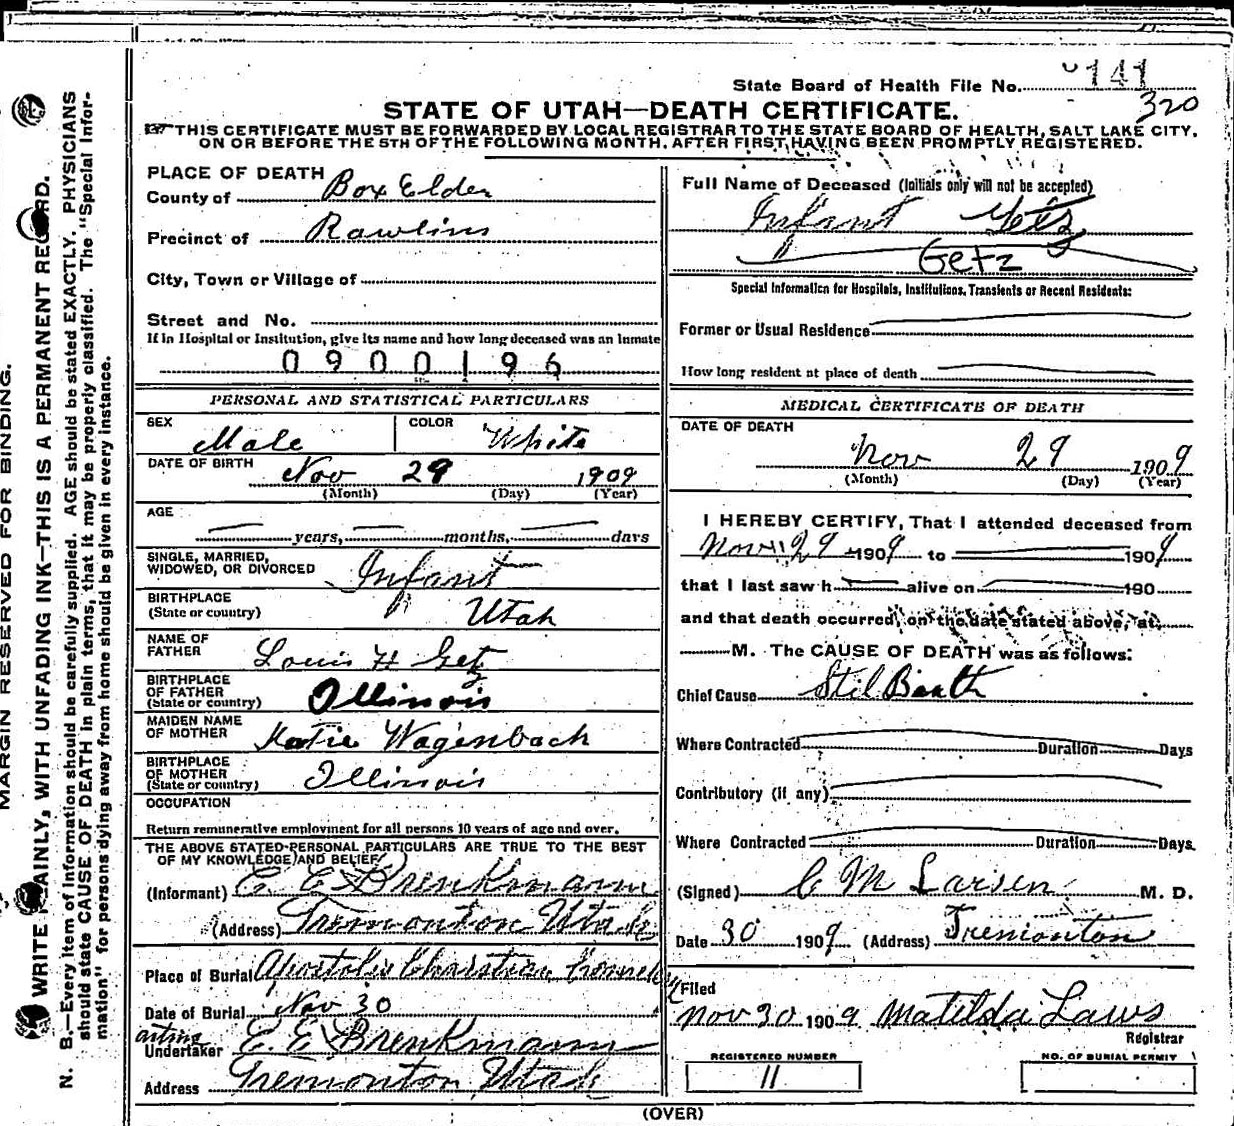 State Board of Health File No. 141
320
STATE OF UTAH—DEATH CERTIFICATE.
THIS CERTIFICATE MUST BE FORWARDED BY LOCAL REGISTRAR TO THE STATE BOARD OF HEALTH, SALT LAKE CITY,
ON OR BEFORE THE 5TH OF THE FOLLOWING MONTH, AFTER FIRST HAVING BEEN PROMPTLY REGISTERED.
MARGIN RESERVED FOR BINDING.
WRITE PLAINLY, WITH UNFADING INK—THIS IS A PERMANENT RECORD.
N. B.—Every item of information should be carefully supplied. AGE should be stated EXACTLY. PHYSICIANS
should state CAUSE OF DEATH in plain terms, that it may be properly classified. The "Special Infor-
mation" for persons dying away from home should be given in every instance.
PLACE OF DEATH
County of Box Elder
Precinct of Rawlins
City, Town or Village of
Street and No.
If in Hospital or Institution, give its name and how long deceased was an Inmate
0900196
PERSONAL AND STATISTICAL PARTICULARS
SEX Male COLOR White
DATE OF BIRTH Nov 29 1909
(Month) (Day) (Year)
AGE
years, months, days
SINGLE, MARRIED,
WIDOWED, OR DIVORCED Infant
BIRTHPLACE
(State or country) Utah
NAME OF
FATHER Louis H Getz
BIRTHPLACE
OF FATHER
(State or country) Illinois
MAIDEN NAME
OF MOTHER Katie Wagenbach
BIRTHPLACE
OF MOTHER
(State or country) Illinois
OCCUPATION
Return remunerative employment for all persons 10 years of age and over.
THE ABOVE STATED PERSONAL PARTICULARS ARE TRUE TO THE BEST
OF MY KNOWLEDGE AND BELIEF
(Informant) E. E. Brenkmann
(Address) Tremonton Utah
Place of Burial Apostolic Christian
Date of Burial Nov 30
acting
Undertaker E. E. Brenkmann
Address Tremonton Utah
Full Name of Deceased (Initials only will not be accepted)
Infant Getz
Getz
Special Information for Hospitals, Institutions, Transients or Recent Residents:
Former or Usual Residence
How long resident at place of death
MEDICAL CERTIFICATE OF DEATH
DATE OF DEATH
Nov 29 1909
(Month) (Day) (Year)
I HEREBY CERTIFY, That I attended deceased from
Nov 29 1909 to 1909
that I last saw h alive on 190
and that death occurred, on the date stated above, at
M. The CAUSE OF DEATH was as follows:
Chief Cause Stil Birth
Where Contracted Duration Days
Contributory (if any)
Where Contracted Duration Days.
(Signed) C M Larsen M. D.
Date 30 1909 (Address) Tremonton
Filed
Nov 30 1909 Matilda Laws
Registrar
REGISTERED NUMBER
11
NO. OF BURIAL PERMIT
(OVER)